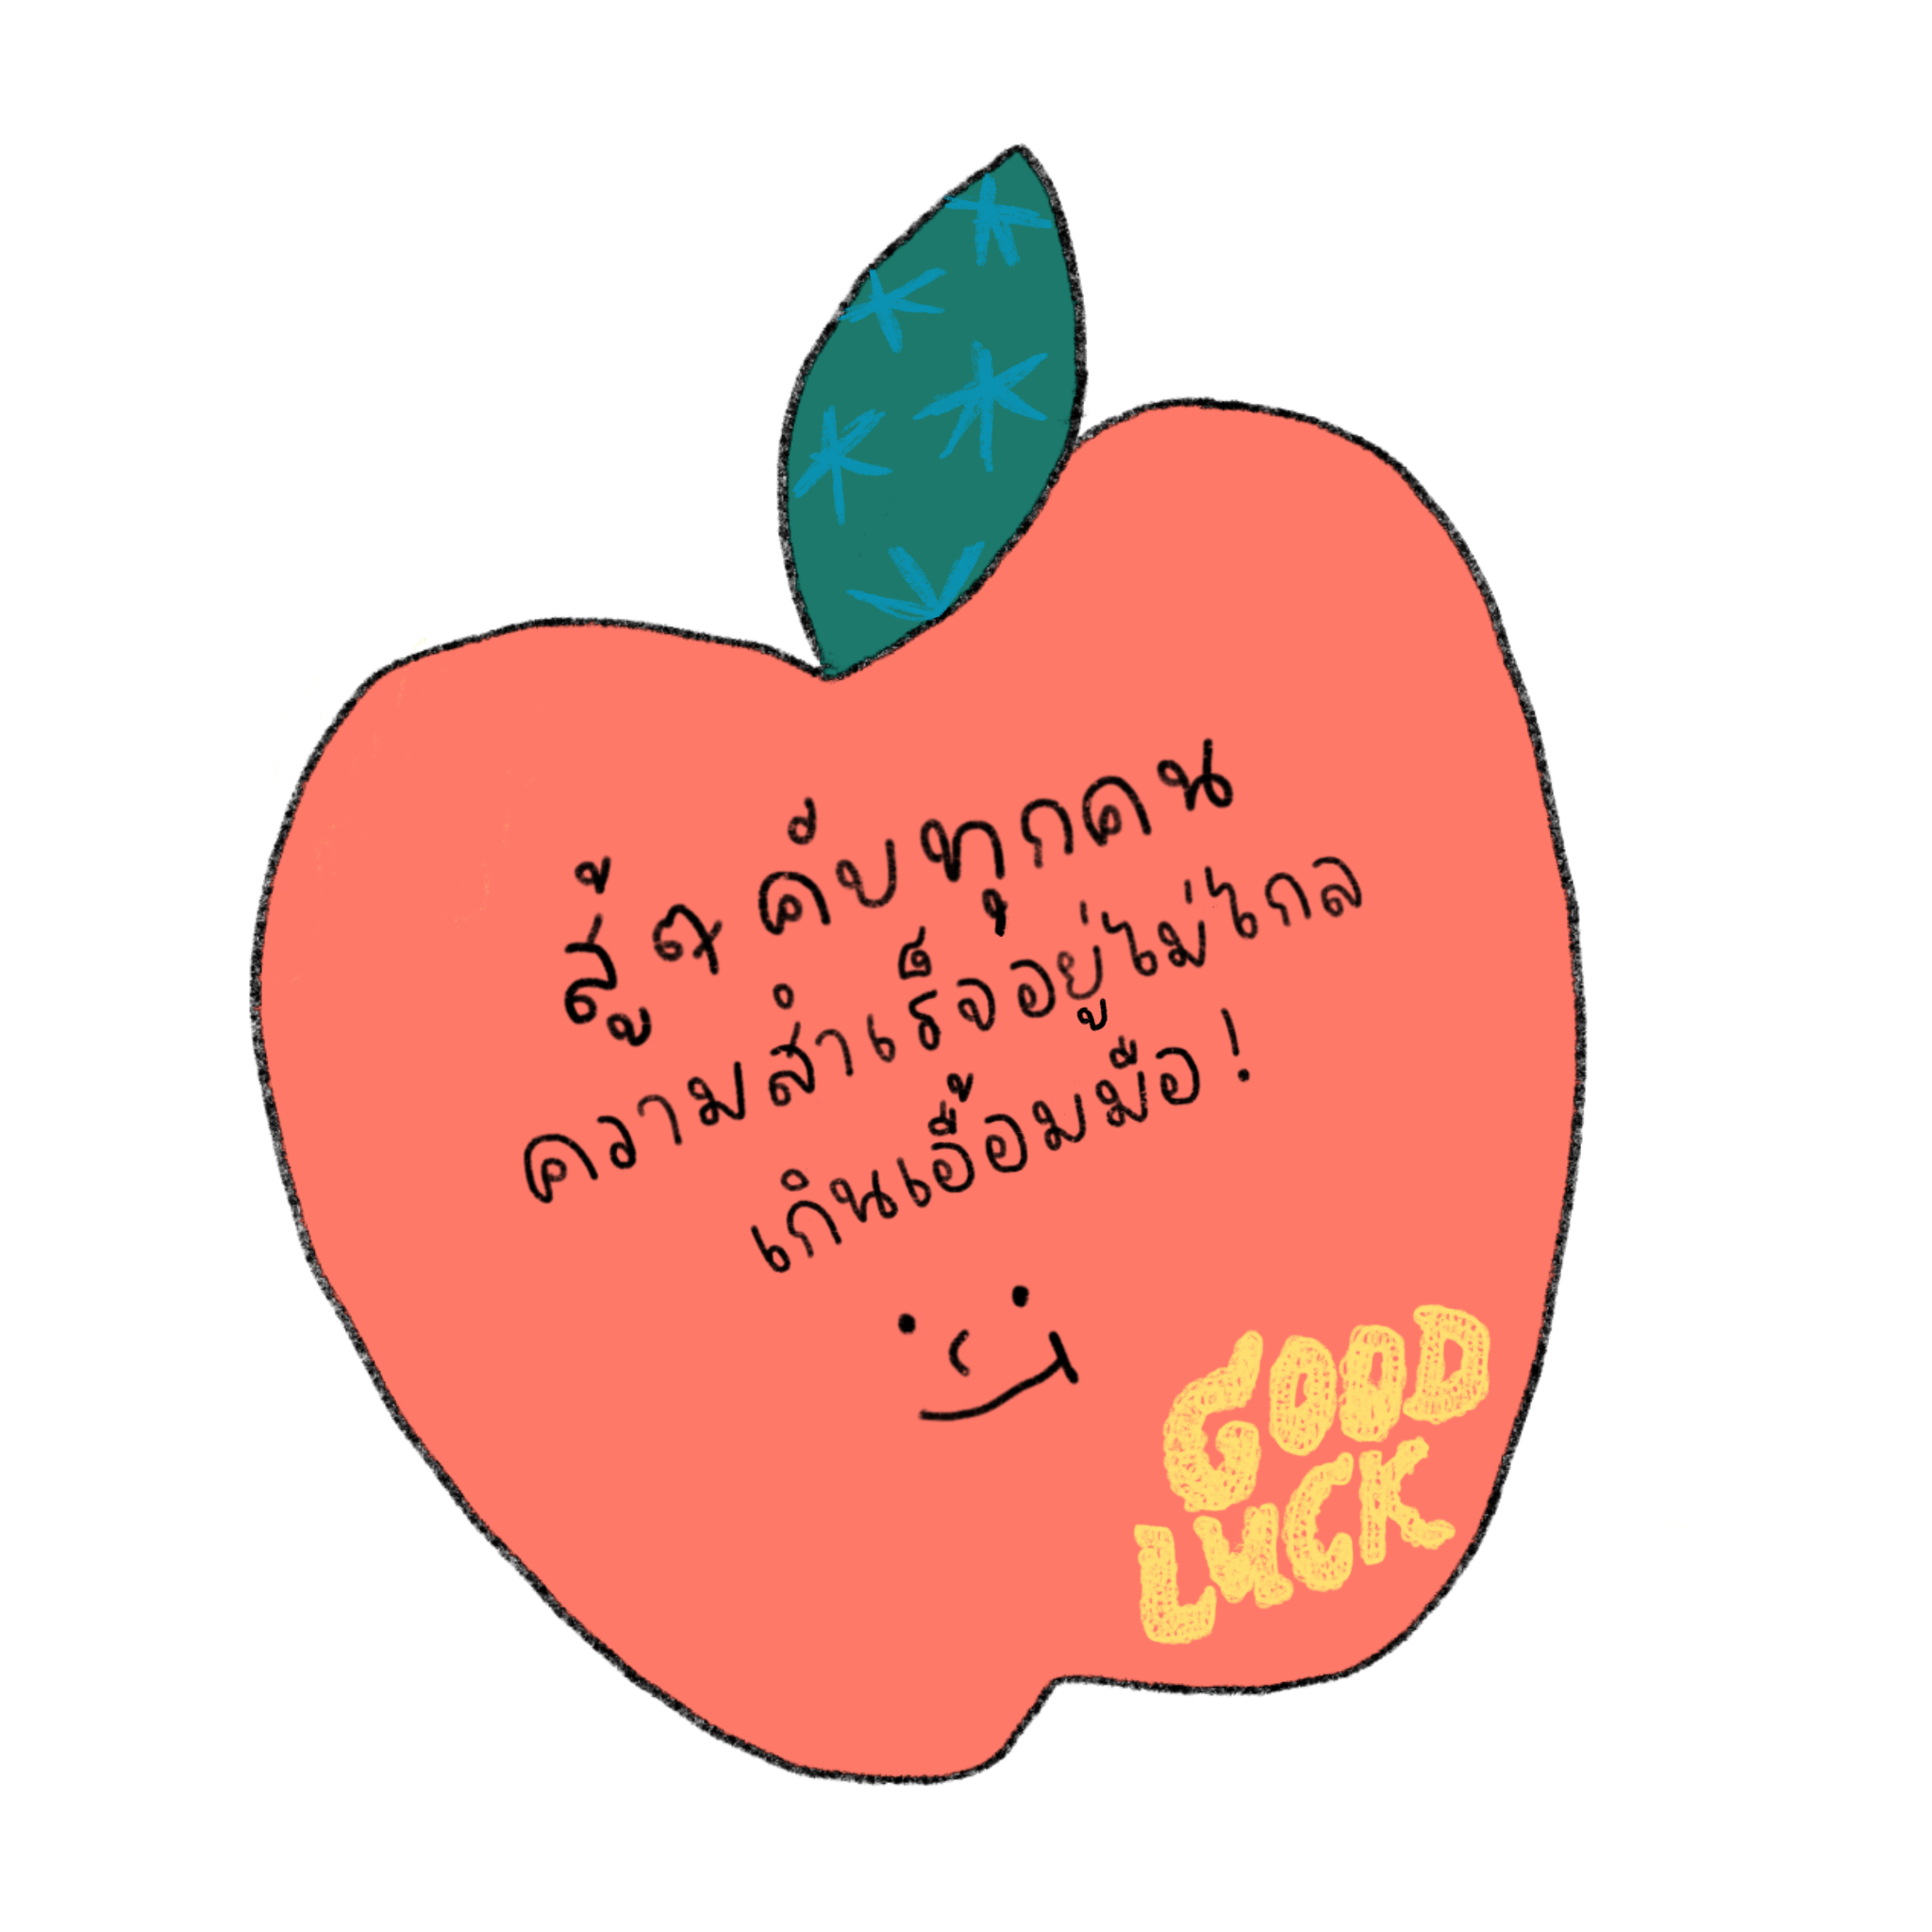 สู้ๆ คับทุกคน
ความสำเร็จอยู่ไม่ไกล
เกินเอื้อมมือ!
GOOD
LUCK